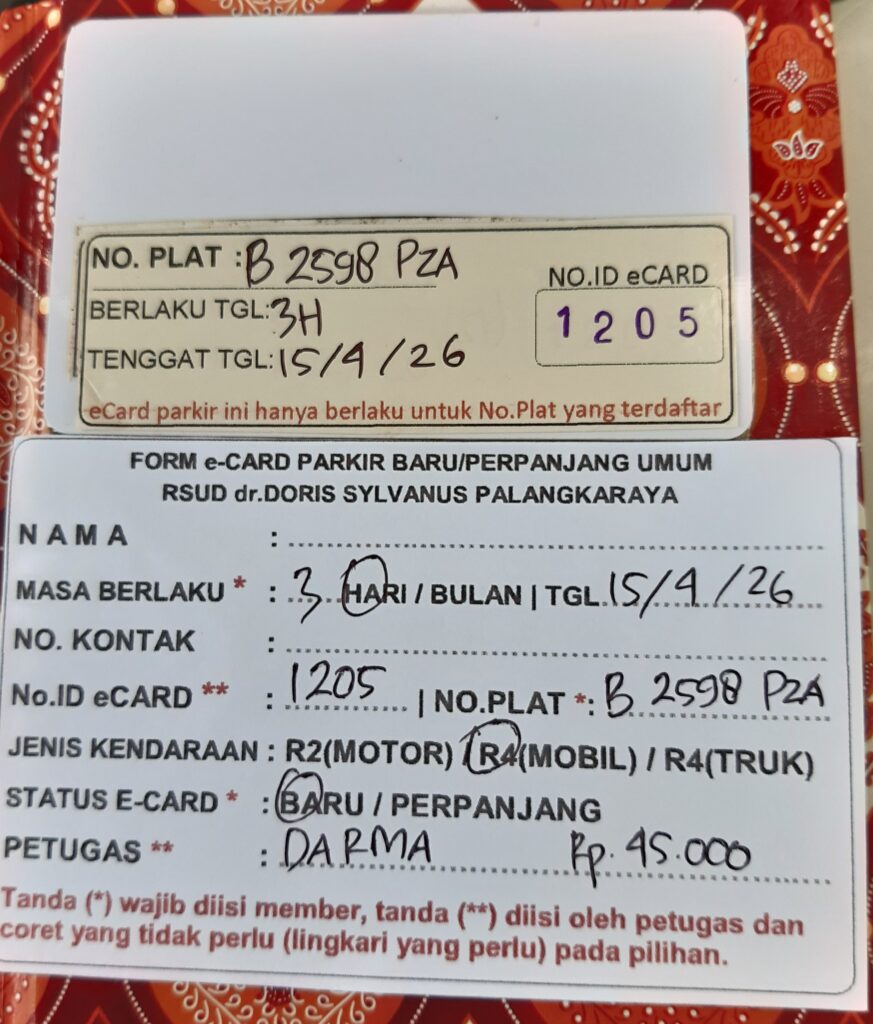 NO. PLAT : B 2598 PZA
NO.ID eCARD
BERLAKU TGL: 3H
1 2 0 5
TENGGAT TGL: 15/4/26
eCard parkir ini hanya berlaku untuk No.Plat yang terdaftar
FORM e-CARD PARKIR BARU/PERPANJANG UMUM
RSUD dr.DORIS SYLVANUS PALANGKARAYA
N A M A :
MASA BERLAKU * : 3 HARI / BULAN | TGL. 15/4/26
NO. KONTAK :
No.ID eCARD ** : 1205 | NO.PLAT *: B 2598 PZA
JENIS KENDARAAN : R2(MOTOR) / R4(MOBIL) / R4(TRUK)
STATUS E-CARD * : BARU / PERPANJANG
PETUGAS ** : DARMA Rp. 45.000
Tanda (*) wajib diisi member, tanda (**) diisi oleh petugas dan
coret yang tidak perlu (lingkari yang perlu) pada pilihan.